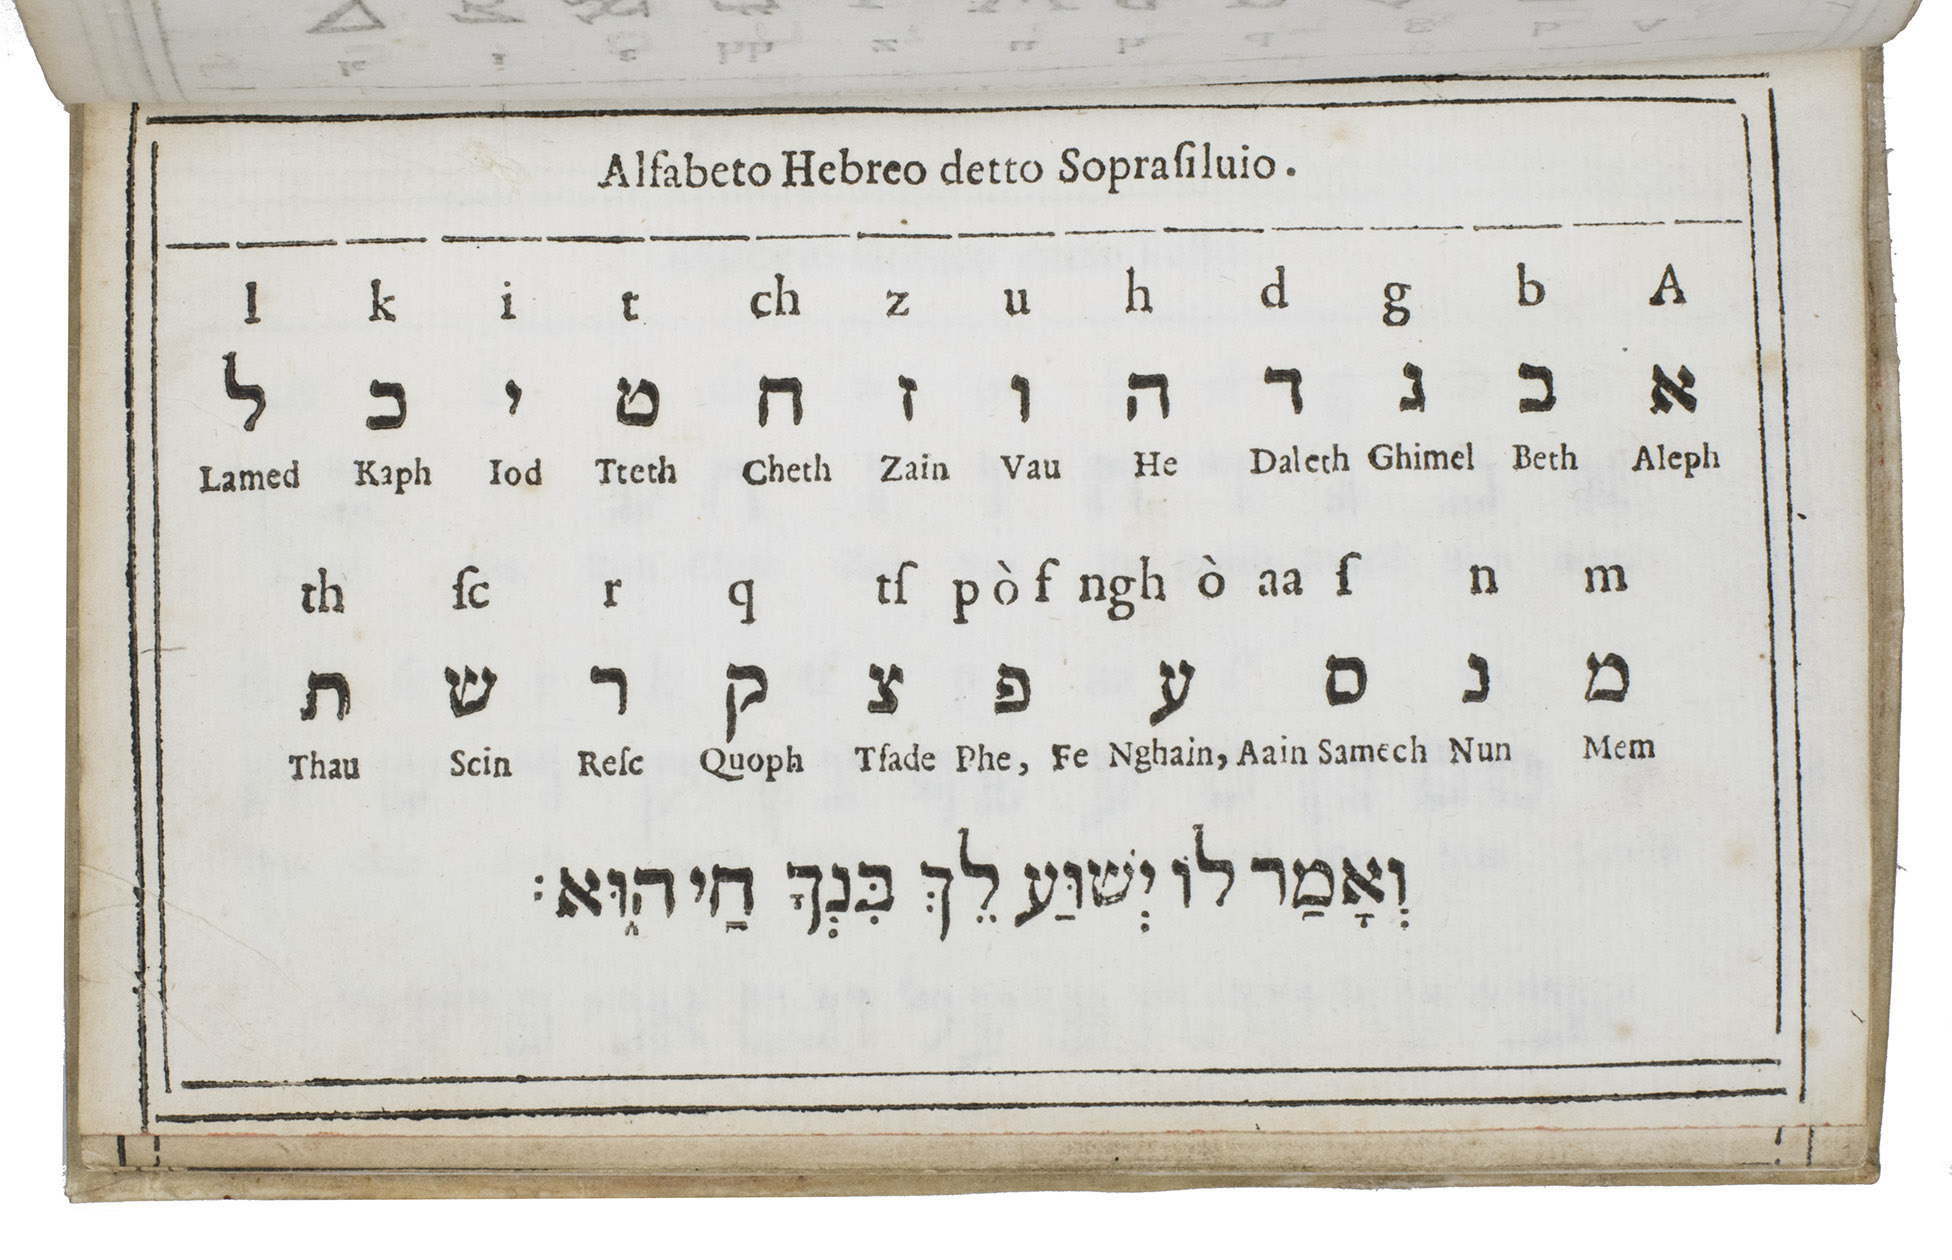 Alfabeto Hebreo detto Sopraſiluio.
l k i t ch z u h d g b A
ל כ י ט ח ז ו ה ד ג ב א
Lamed Kaph Iod Tteth Cheth Zain Vau He Daleth Ghimel Beth Aleph
th ſc r q tſ p ò f ngh ò aa ſ n m
ת ש ר ק צ פ ע ס נ מ
Thau Scin Reſc Quoph Tſade Phe, Fe Nghain, Aain Samech Nun Mem
וְאָמַר לוֹ יְשׁוּעַ לֵךְ בִּנְךָ חַי הוּא׃